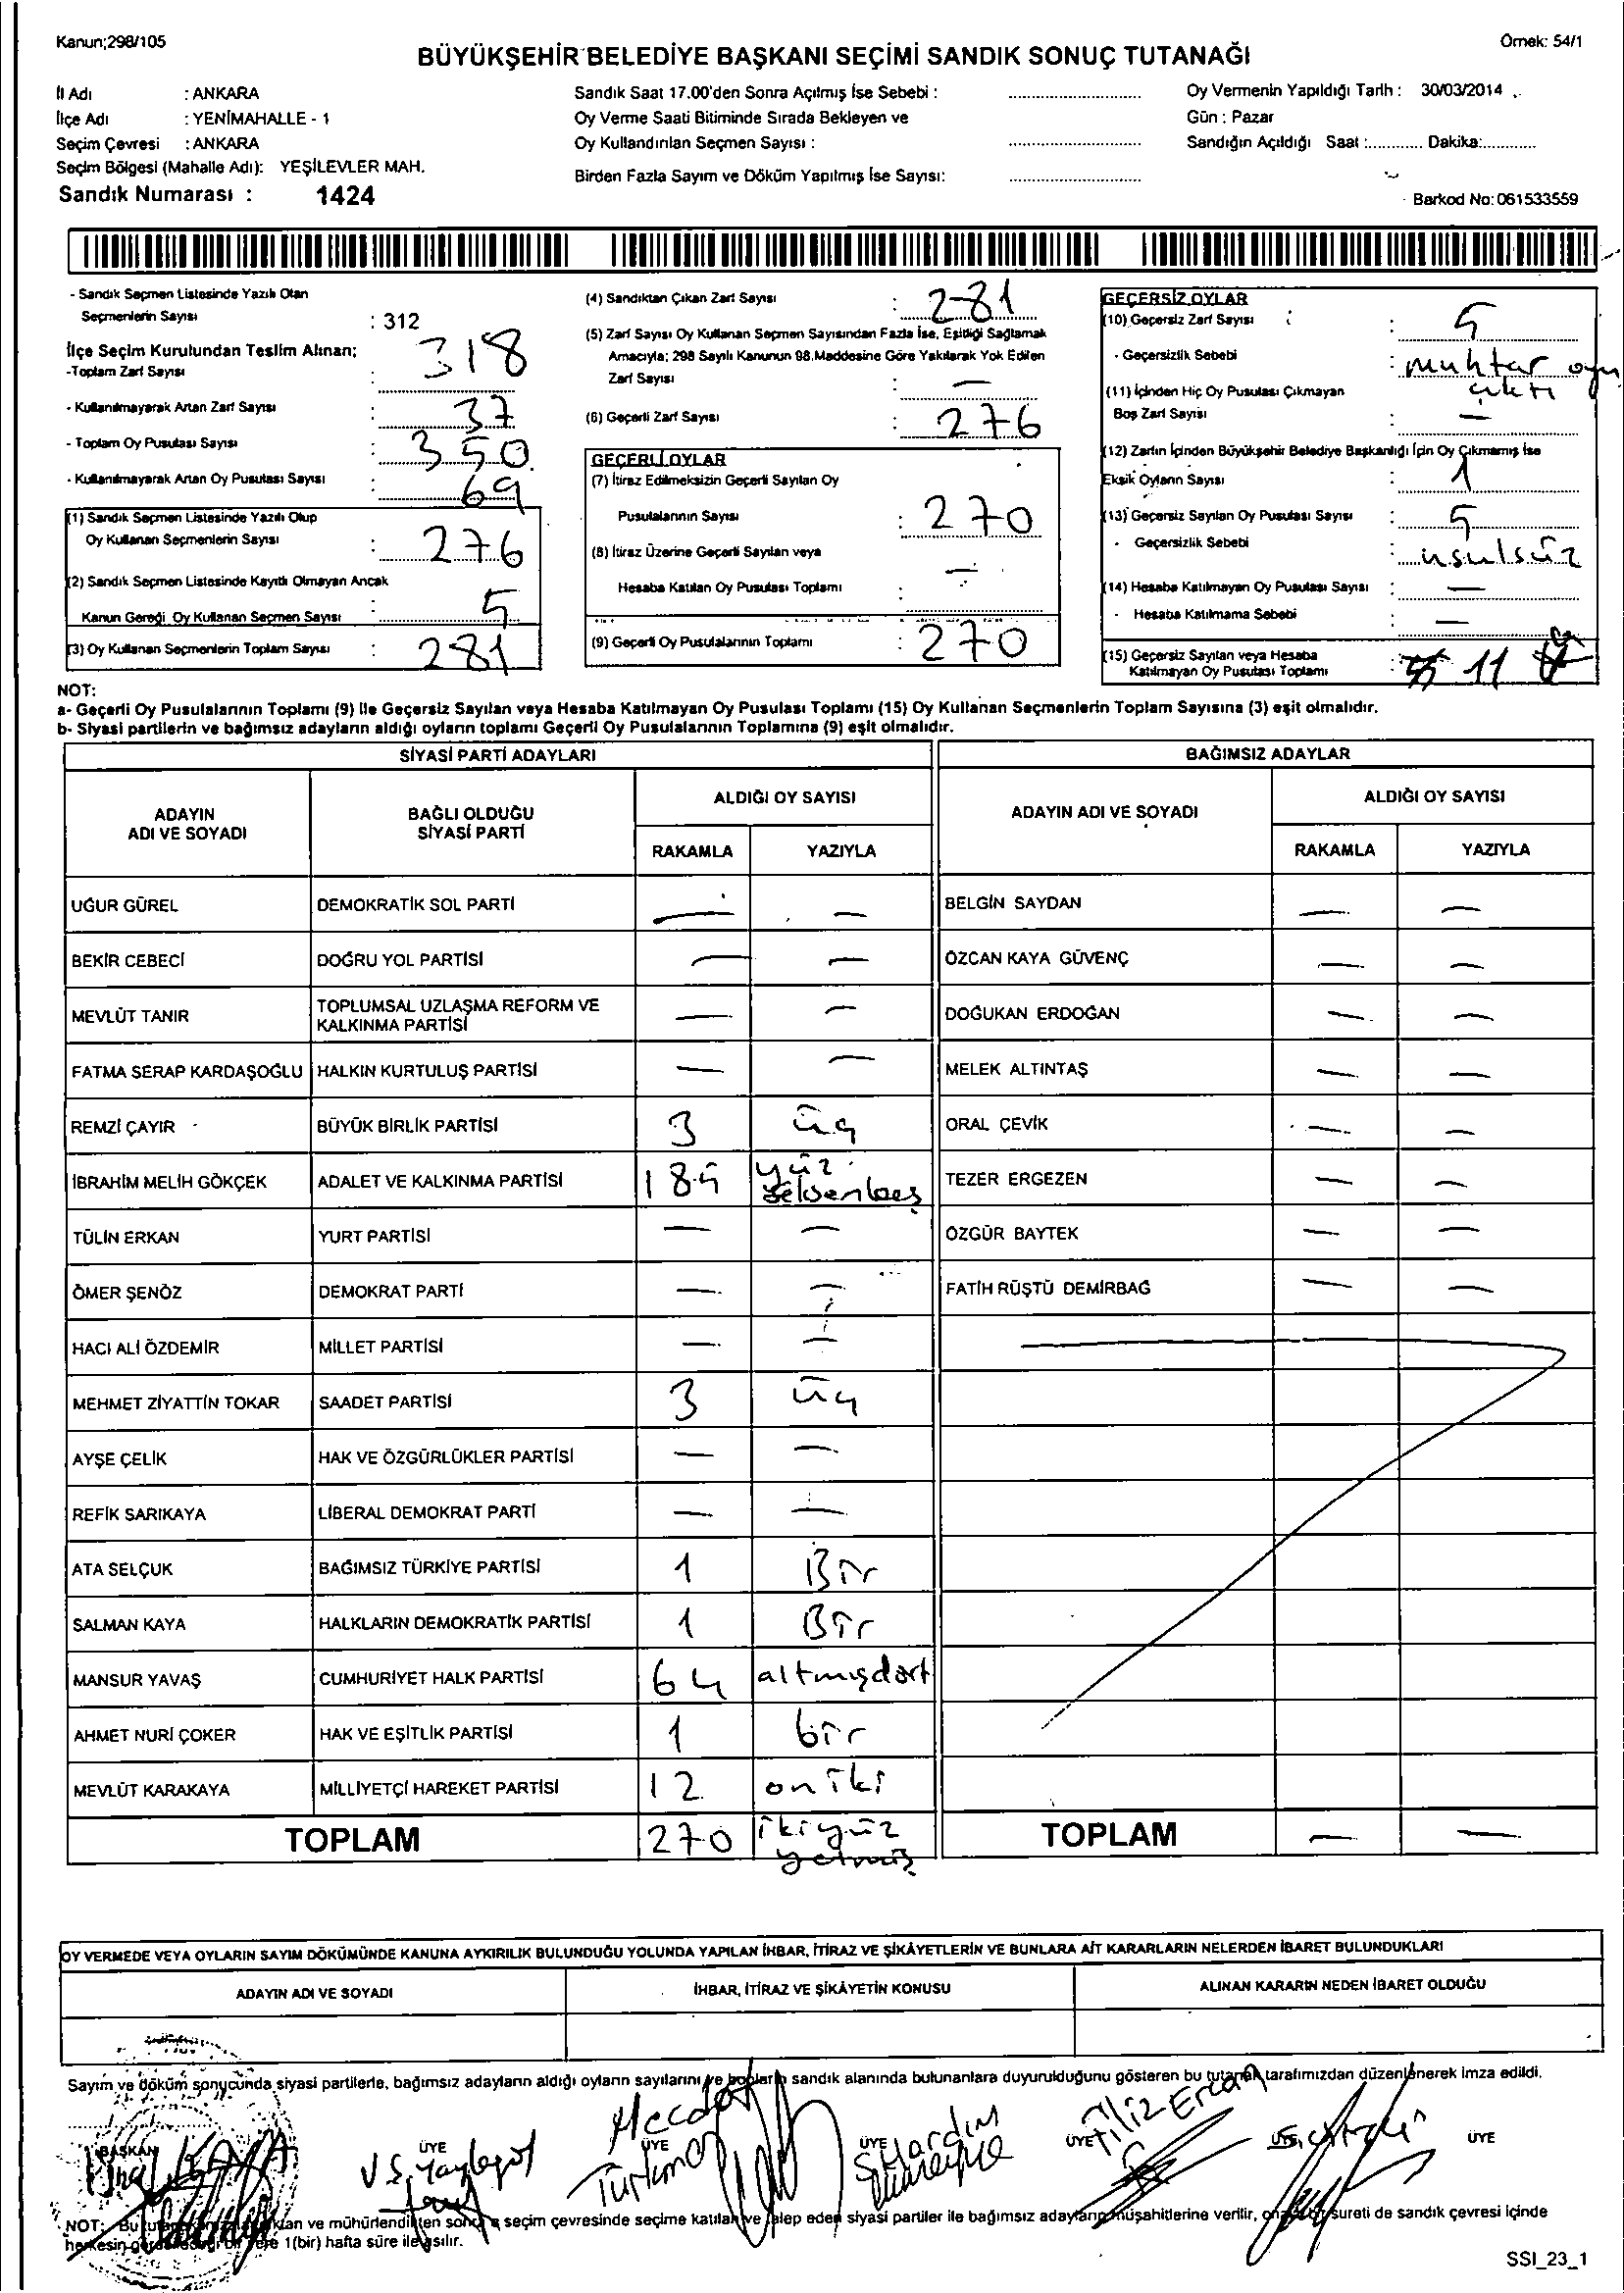 Kanun;298/105
Örnek: 54/1
BÜYÜKŞEHİR BELEDİYE BAŞKANI SEÇİMİ SANDIK SONUÇ TUTANAĞI
İl Adı : ANKARA
İlçe Adı : YENİMAHALLE - 1
Seçim Çevresi : ANKARA
Seçim Bölgesi (Mahalle Adı): YEŞİLEVLER MAH.
Sandık Numarası : 1424
Sandık Saat 17.00'den Sonra Açılmış İse Sebebi :
Oy Verme Saati Bitiminde Sırada Bekleyen ve
Oy Kullandırılan Seçmen Sayısı :
Birden Fazla Sayım ve Döküm Yapılmış İse Sayısı:
Oy Vermenin Yapıldığı Tarih : 30/03/2014
Gün : Pazar
Sandığın Açıldığı Saat :............ Dakika:............
Barkod No: 061533559
- Sandık Seçmen Listesinde Yazılı Olan
Seçmenlerin Sayısı : 312
İlçe Seçim Kurulundan Teslim Alınan;
-Toplam Zarf Sayısı : 318
- Kullanılmayarak Artan Zarf Sayısı : 37
- Toplam Oy Pusulası Sayısı : 350
- Kullanılmayarak Artan Oy Pusulası Sayısı : 69
(1) Sandık Seçmen Listesinde Yazılı Olup
Oy Kullanan Seçmenlerin Sayısı : 276
(2) Sandık Seçmen Listesinde Kayıtlı Olmayan Ancak
Kanun Gereği Oy Kullanan Seçmen Sayısı : 5
(3) Oy Kullanan Seçmenlerin Toplam Sayısı : 281
(4) Sandıktan Çıkan Zarf Sayısı : 281
(5) Zarf Sayısı Oy Kullanan Seçmen Sayısından Fazla İse, Eşitliği Sağlamak
Amacıyla; 298 Sayılı Kanunun 98.Maddesine Göre Yakılarak Yok Edilen
Zarf Sayısı : —
(6) Geçerli Zarf Sayısı : 276
GEÇERLİ OYLAR
(7) İtiraz Edilmeksizin Geçerli Sayılan Oy
Pusulalarının Sayısı : 270
(8) İtiraz Üzerine Geçerli Sayılan veya
Hesaba Katılan Oy Pusulası Toplamı : —
(9) Geçerli Oy Pusulalarının Toplamı : 270
GEÇERSİZ OYLAR
(10) Geçersiz Zarf Sayısı : 5
- Geçersizlik Sebebi : muhtar oyu
çıktı
(11) İçinden Hiç Oy Pusulası Çıkmayan
Boş Zarf Sayısı : —
(12) Zarfın İçinden Büyükşehir Belediye Başkanlığı İçin Oy Çıkmamış İse
Eksik Oyların Sayısı : 1
(13) Geçersiz Sayılan Oy Pusulası Sayısı : 5
- Geçersizlik Sebebi : usulsüz
(14) Hesaba Katılmayan Oy Pusulası Sayısı : —
- Hesaba Katılmama Sebebi : —
(15) Geçersiz Sayılan veya Hesaba
Katılmayan Oy Pusulası Toplamı : 11
NOT:
a- Geçerli Oy Pusulalarının Toplamı (9) ile Geçersiz Sayılan veya Hesaba Katılmayan Oy Pusulası Toplamı (15) Oy Kullanan Seçmenlerin Toplam Sayısına (3) eşit olmalıdır.
b- Siyasi partilerin ve bağımsız adayların aldığı oyların toplamı Geçerli Oy Pusulalarının Toplamına (9) eşit olmalıdır.
SİYASİ PARTİ ADAYLARI
BAĞIMSIZ ADAYLAR
ADAYIN
ADI VE SOYADI
BAĞLI OLDUĞU
SİYASİ PARTİ
ALDIĞI OY SAYISI
RAKAMLA YAZIYLA
ADAYIN ADI VE SOYADI
ALDIĞI OY SAYISI
RAKAMLA YAZIYLA
UĞUR GÜREL DEMOKRATİK SOL PARTİ — — BELGİN SAYDAN — —
BEKİR CEBECİ DOĞRU YOL PARTİSİ — — ÖZCAN KAYA GÜVENÇ — —
MEVLÜT TANIR TOPLUMSAL UZLAŞMA REFORM VE
KALKINMA PARTİSİ — — DOĞUKAN ERDOĞAN — —
FATMA SERAP KARDAŞOĞLU HALKIN KURTULUŞ PARTİSİ — — MELEK ALTINTAŞ — —
REMZİ ÇAYIR BÜYÜK BİRLİK PARTİSİ 3 üç ORAL ÇEVİK — —
İBRAHİM MELİH GÖKÇEK ADALET VE KALKINMA PARTİSİ 185 yüz
seksenbeş TEZER ERGEZEN — —
TÜLİN ERKAN YURT PARTİSİ — — ÖZGÜR BAYTEK — —
ÖMER ŞENÖZ DEMOKRAT PARTİ — — FATİH RÜŞTÜ DEMİRBAĞ — —
HACI ALİ ÖZDEMİR MİLLET PARTİSİ — —
MEHMET ZİYATTİN TOKAR SAADET PARTİSİ 3 üç
AYŞE ÇELİK HAK VE ÖZGÜRLÜKLER PARTİSİ — —
REFİK SARIKAYA LİBERAL DEMOKRAT PARTİ — —
ATA SELÇUK BAĞIMSIZ TÜRKİYE PARTİSİ 1 Bir
SALMAN KAYA HALKLARIN DEMOKRATİK PARTİSİ 1 Bir
MANSUR YAVAŞ CUMHURİYET HALK PARTİSİ 64 altmışdört
AHMET NURİ ÇOKER HAK VE EŞİTLİK PARTİSİ 1 bir
MEVLÜT KARAKAYA MİLLİYETÇİ HAREKET PARTİSİ 12 oniki
TOPLAM 270 ikiyüz
yetmiş TOPLAM — —
OY VERMEDE VEYA OYLARIN SAYIM DÖKÜMÜNDE KANUNA AYKIRILIK BULUNDUĞU YOLUNDA YAPILAN İHBAR, İTİRAZ VE ŞİKÂYETLERİN VE BUNLARA AİT KARARLARIN NELERDEN İBARET BULUNDUKLARI
ADAYIN ADI VE SOYADI İHBAR, İTİRAZ VE ŞİKÂYETİN KONUSU ALINAN KARARIN NEDEN İBARET OLDUĞU
Sayım ve döküm sonucunda siyasi partilerle, bağımsız adayların aldığı oyların sayılarını ve sandık alanında bulunanlara duyurulduğunu gösteren bu tutanak tarafımızdan düzenlenerek imza edildi.
BAŞKAN ÜYE ÜYE ÜYE ÜYE ÜYE ÜYE
Filiz Ercan
NOT: Bu ve mühürlendikten sonra seçim çevresinde seçime katılan ve talep eden siyasi partiler ile bağımsız adayların müşahitlerine verilir, sureti de sandık çevresi içinde
herkesin bir yere 1(bir) hafta süre ile asılır.
SSI_23_1